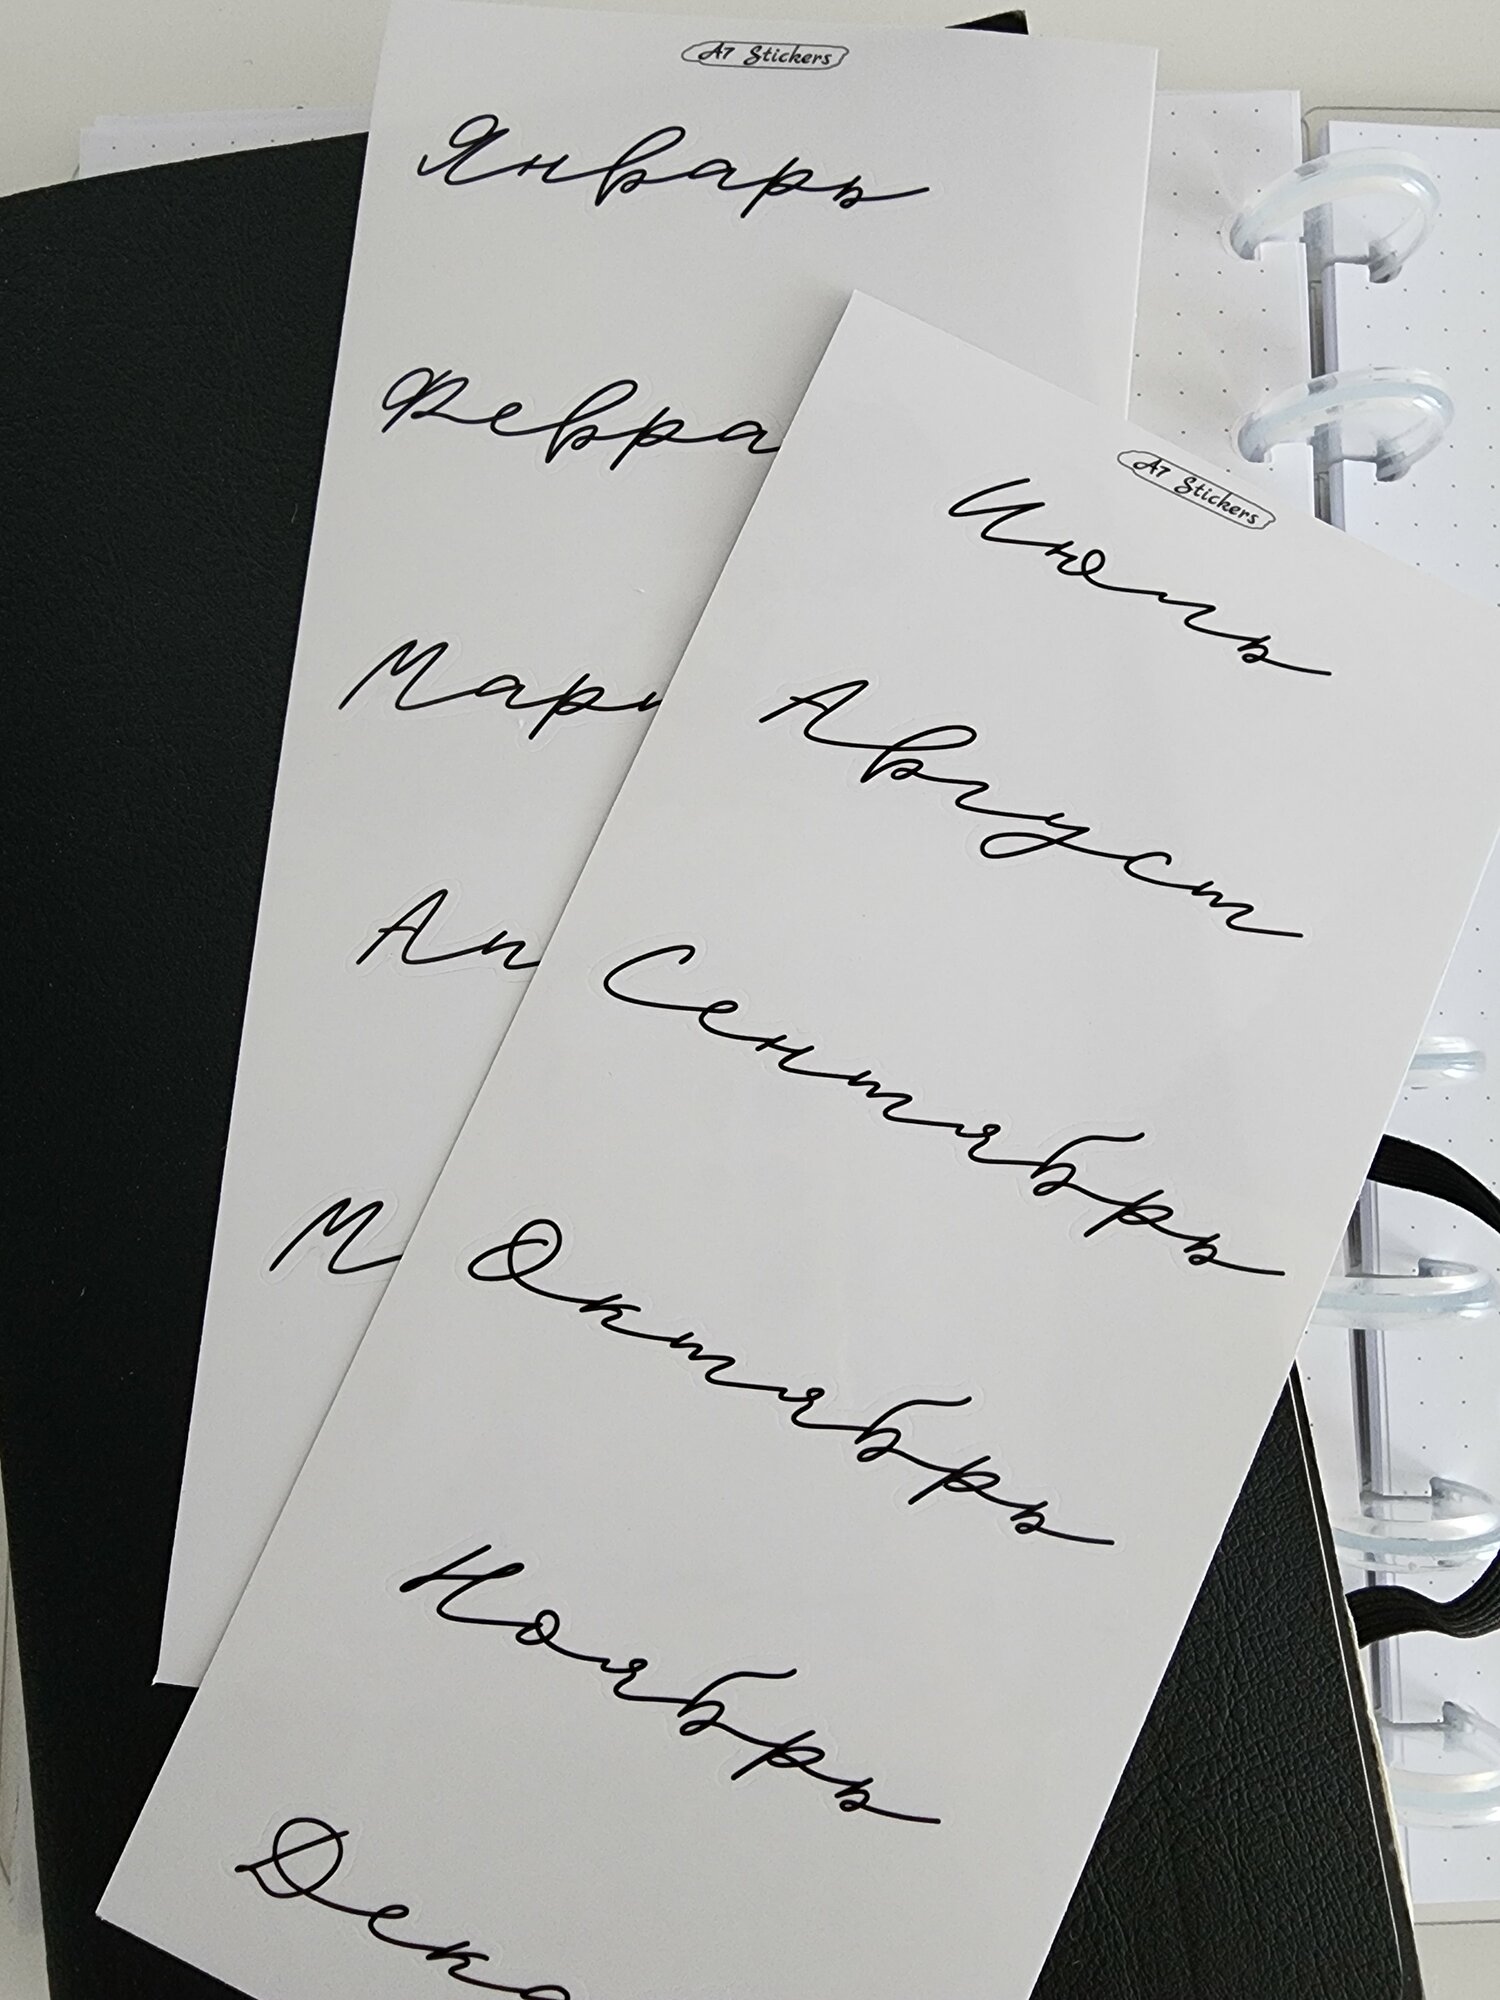 A7 Stickers
Январь
Февра
Мар
Ап
М
A7 Stickers
Июль
Август
Сентябрь
Октябрь
Ноябрь
Дека